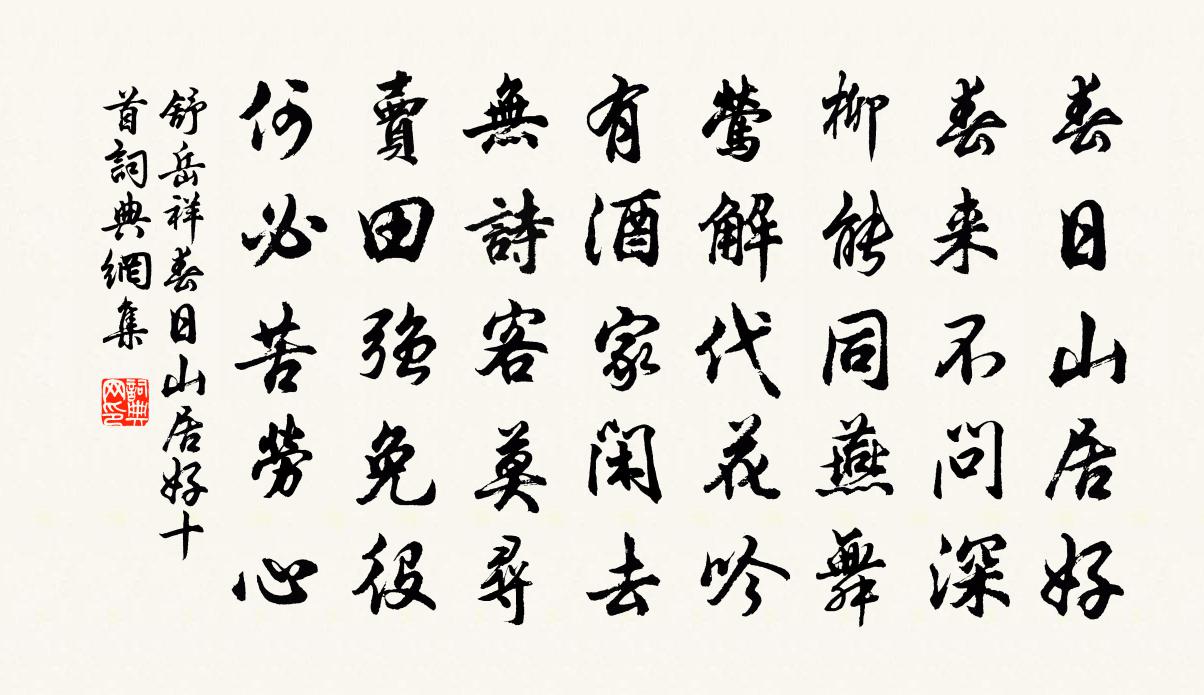 春日山居好
春来不问深
柳能同燕舞
莺解代花吟
有酒家闲去
無詩客莫尋
賣田强免役
何必苦勞心
舒岳祥春日山居好十
首詞典網集
詞典网印